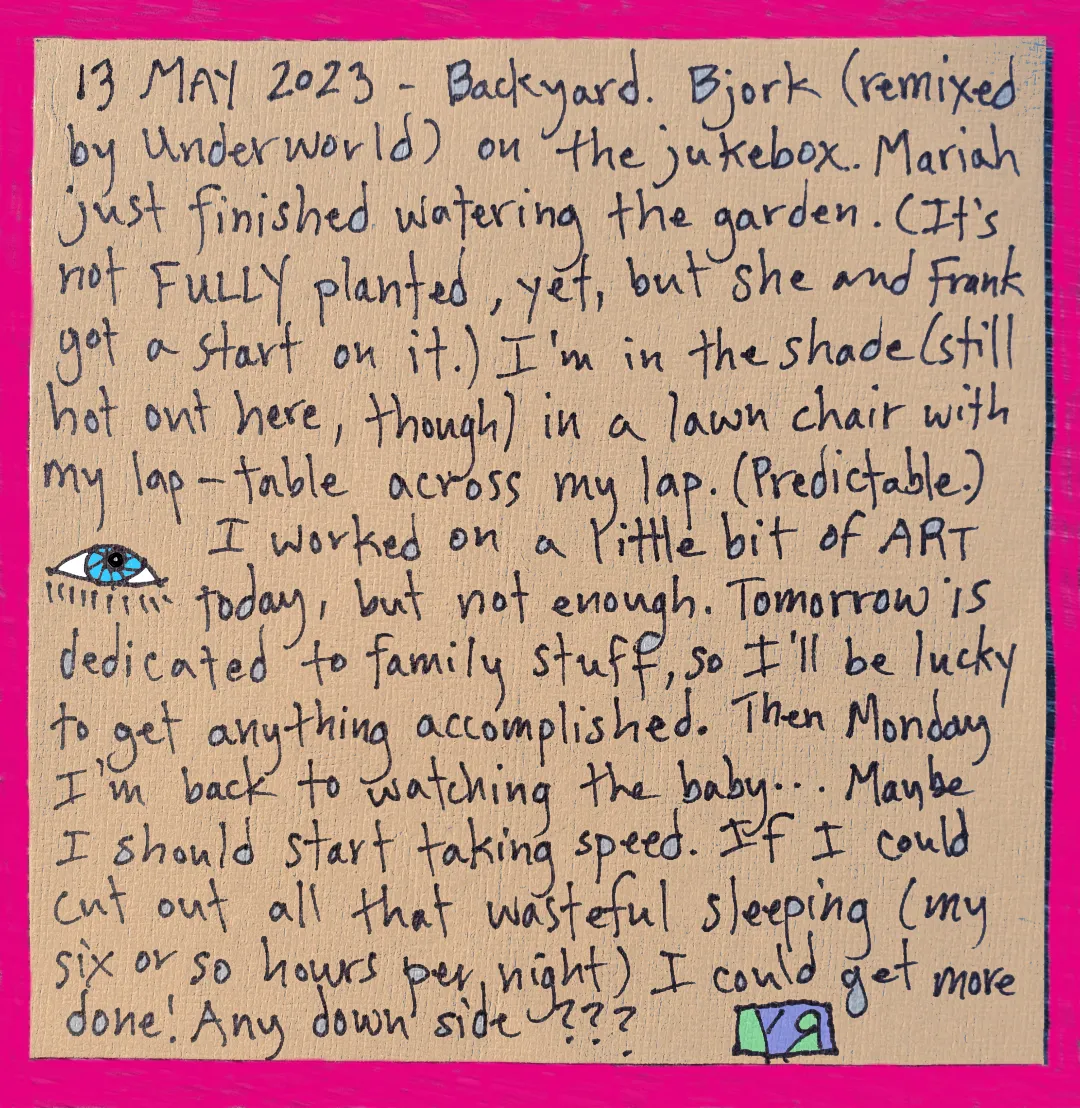 13 MAY 2023 - Backyard. Bjork (remixed
by Underworld) on the jukebox. Mariah
just finished watering the garden. (It's
not FULLY planted, yet, but she and Frank
got a start on it.) I'm in the shade (still
hot out here, though) in a lawn chair with
my lap-table across my lap. (Predictable.)
I worked on a little bit of ART
today, but not enough. Tomorrow is
dedicated to family stuff, so I'll be lucky
to get anything accomplished. Then Monday
I'm back to watching the baby... Maybe
I should start taking speed. If I could
cut out all that wasteful sleeping (my
six or so hours per night) I could get more
done! Any down side ???